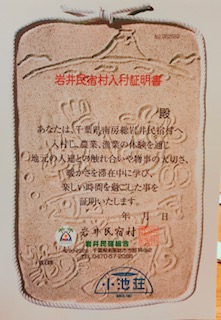 岩井民宿村入村証明書
殿
あなたは、千葉県南房総岩井民宿村
に入村し、農業、漁業の体験を通じ
地元の人達との触れ合いや物事の大切さ、
暖かさを滞在中に学び、
楽しい時間を過ごした事を
証明いたします。
年 月 日
岩井民宿村
岩井民宿組合
TEL 0470-57-2088
小池荘